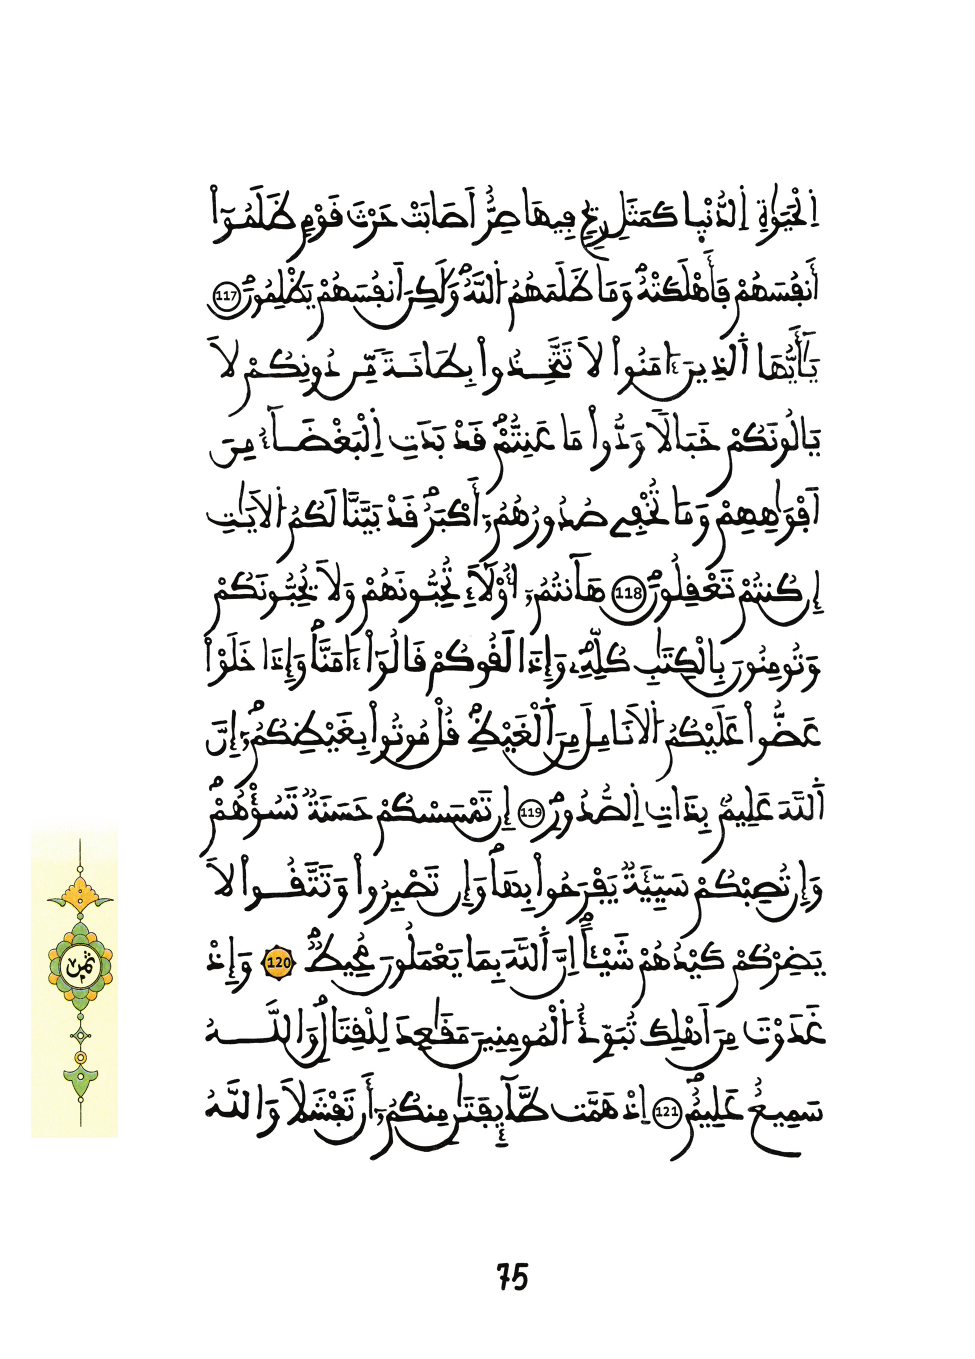 اِ۬لْحَيَوٰةِ اِ۬لدُّنْي۪ا كَمَثَلِ رِيحٖ فِيهَا صِرٌّ اَصَابَتْ حَرْثَ قَوْمٖ ظَلَمُوٓاْ
أَنفُسَهُمْ فَأَهْلَكَتْهُۖ وَمَا ظَلَمَهُمُ اُ۬للَّهُۖ وَلَٰكِنَ اَنفُسَهُمْ يَظْلِمُونَۖ 117
يَٰٓأَيُّهَا اَ۬لذِينَ ءَامَنُواْ لَا تَتَّخِذُواْ بِطَانَةٗ مِّن دُونِكُمْ لَا
يَالُونَكُمْ خَبَالاٗ وَدُّواْ مَا عَنِتُّمْۖ قَدْ بَدَتِ اِ۬لْبَغْضَآءُ مِنَ
اَفْوَٰهِهِمْ وَمَا تُخْفِے صُدُورُهُمُۥٓ أَكْبَرُۖ قَدْ بَيَّنَّا لَكُمُ اُ۬لَايَٰتِ
إِن كُنتُمْ تَعْقِلُونَۖ 118 هَٰٓأَنتُمُۥٓ أُوْلَآءِ تُحِبُّونَهُمْ وَلَا يُحِبُّونَكُمْ
وَتُومِنُونَ بِالْكِتَٰبِ كُلِّهِۦۖ وَإِذَا لَقُوكُمْ قَالُوٓاْ ءَامَنَّاۖ وَإِذَا خَلَوْاْ
عَضُّواْ عَلَيْكُمُ اُ۬لَانَامِلَ مِنَ اَ۬لْغَيْظِۖ قُلْ مُوتُواْ بِغَيْظِكُمُۥٓۖ إِنَّ
اَ۬للَّهَ عَلِيمُۢ بِذَاتِ اِ۬لصُّدُورِۖ 119 إِن تَمْسَسْكُمْ حَسَنَةٞ تَسُؤْهُمْۖ
وَإِن تُصِبْكُمْ سَيِّئَةٞ يَفْرَحُواْ بِهَاۖ وَإِن تَصْبِرُواْ وَتَتَّقُواْ لَا
يَضِرْكُمْ كَيْدُهُمْ شَيْـٔاًۖ اِنَّ اَ۬للَّهَ بِمَا يَعْمَلُونَ مُحِيطٞۖ 120 وَإِذْ
غَدَوْتَ مِنَ اَهْلِكَ تُبَوِّئُ اُ۬لْمُومِنِينَ مَقَٰعِدَ لِلْقِتَالِۖ وَاللَّهُ
سَمِيعٌ عَلِيمٌۖ 121 اِذْ هَمَّت طَّآئِفَتَٰنِ مِنكُمُۥٓ أَن تَفْشَلَا وَاللَّهُ
ثمن
75